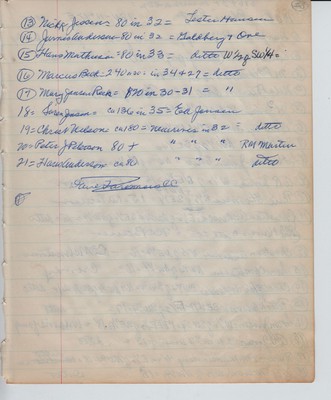 (13) Nick Jensen = 80 in 32 = Lester Hansen
(14) Jurvis Anderson = 80 in 32 = Goldberg & One
(15) Hans Mathuson = 80 in 33 = ditto W½ of SW¼ =
(16) Marcus Beck = 240 in 34 + 27 = ditto
(17) Mary Jensen = 820 in 30-31 = "
18 = Soren Jensen = ca 136 in 35 = Ed Jensen
19 = Christ Nelson ca 180 = in 32 = ditto
20 = Peter J Peterson 80 + " " " RM Martin
21 = Hans Anderson ca 80 " " " ditto